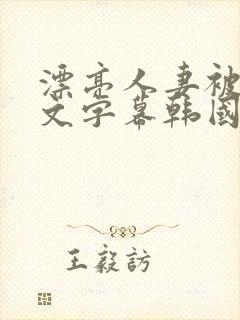 漂亮人妻被
文字幕韩國
王毅訪